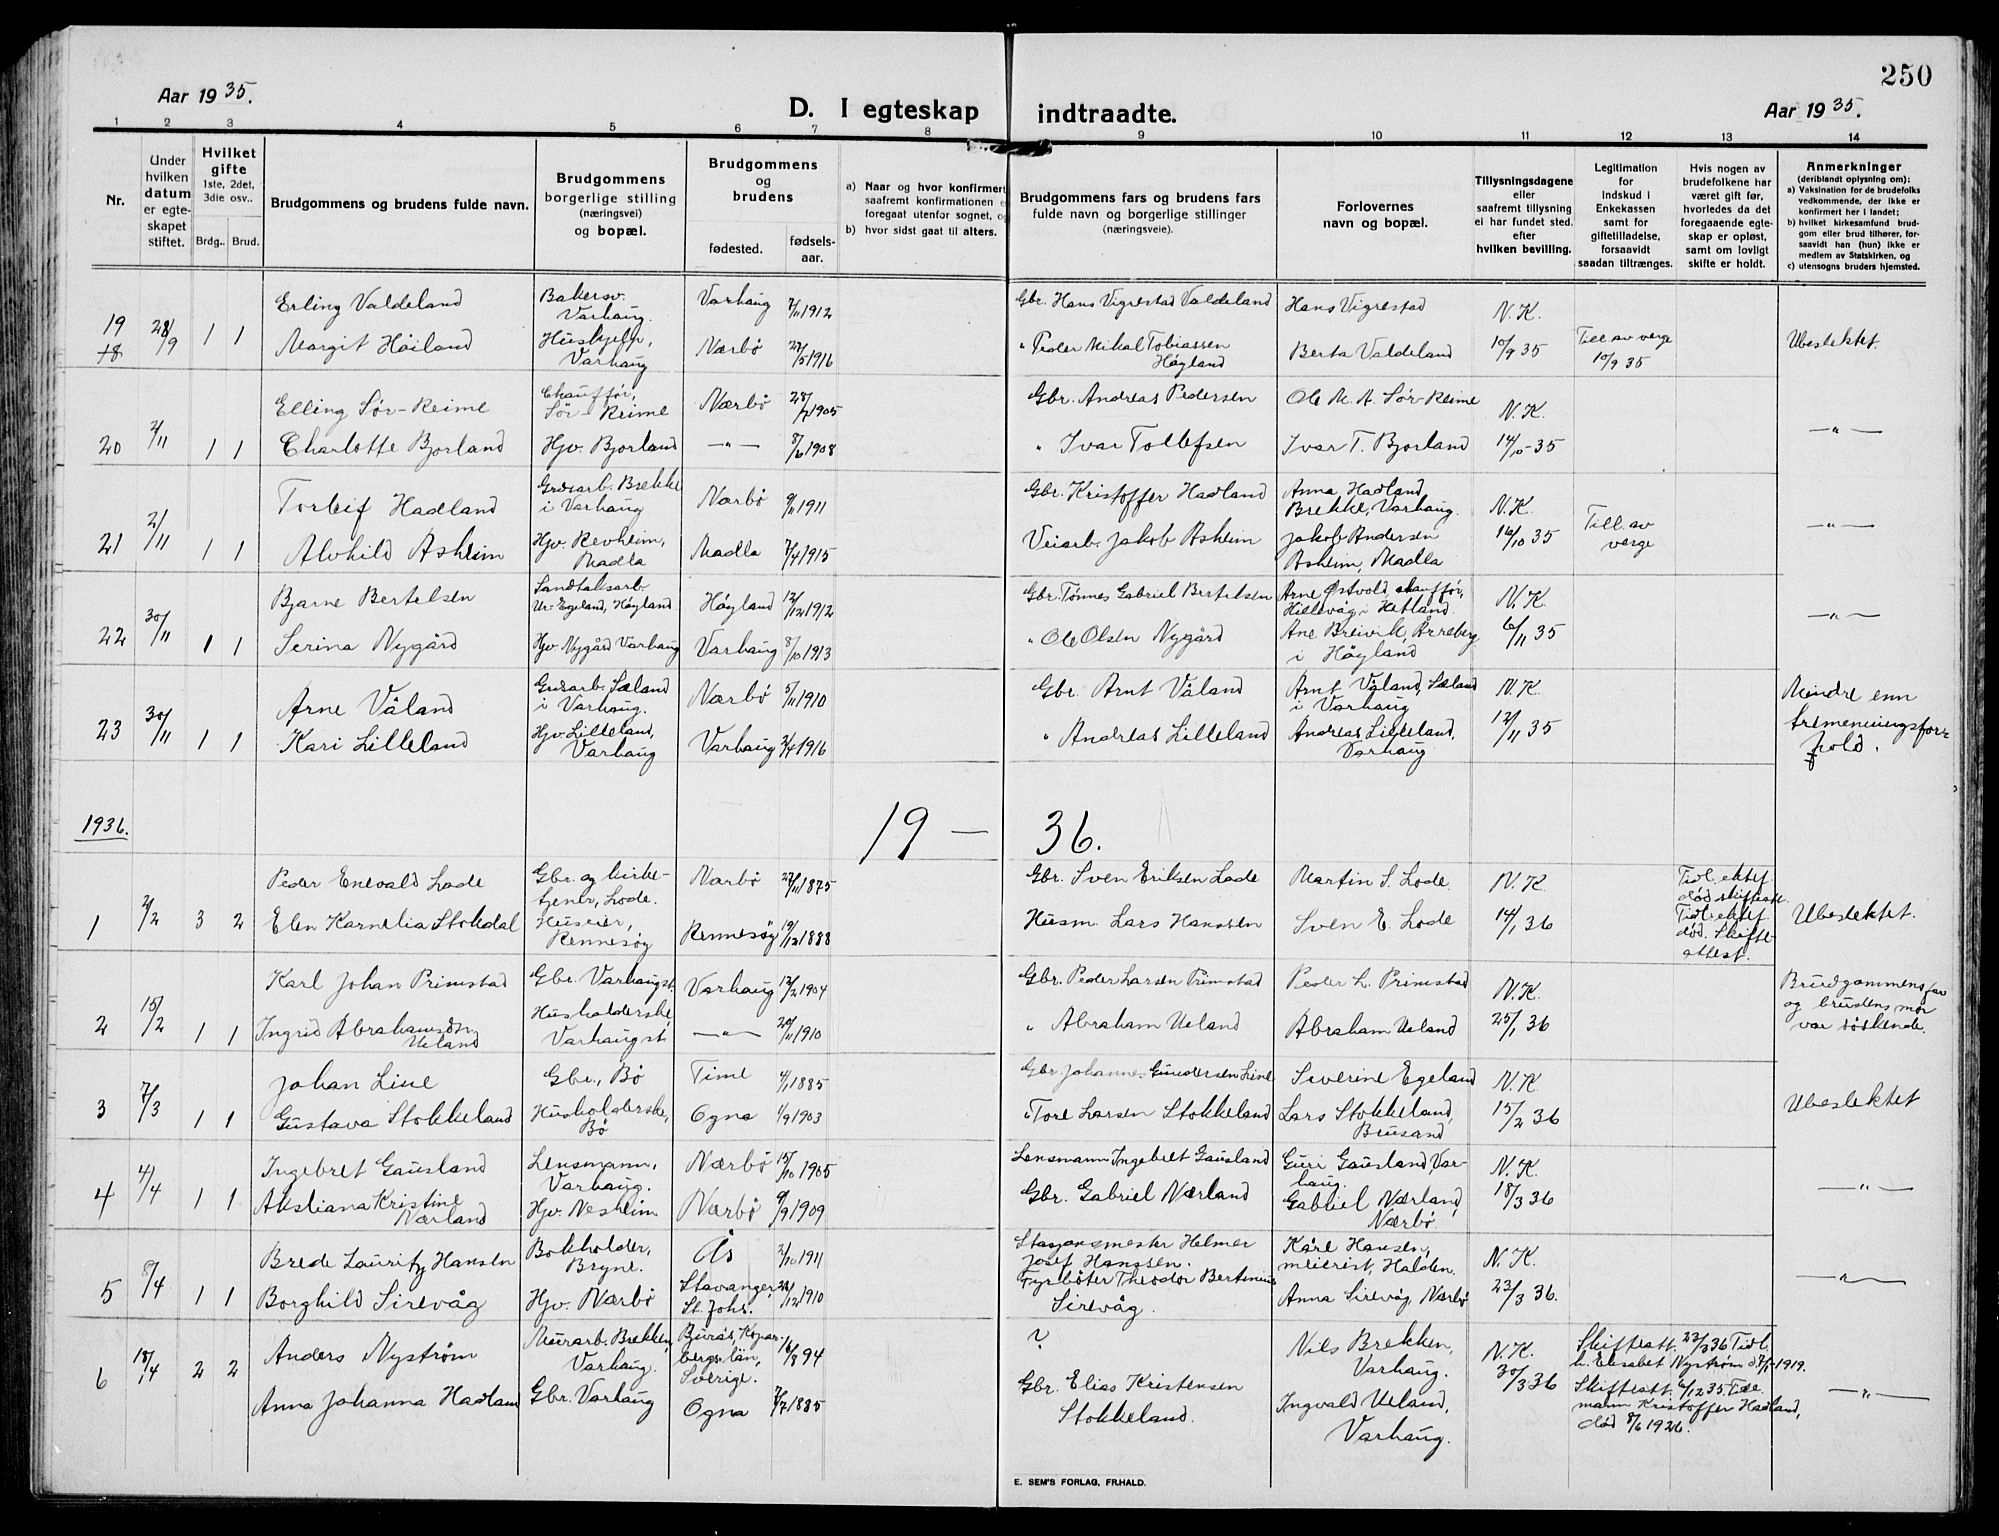 250
Aar 1935.
D. I egteskap indtraadte.
Aar 1935.
1 2 3 4 5 6 7 8 9 10 11 12 13 14
Nr.
Under hvilken datum er egte-skapet stiftet.
Hvilket gifte 1ste, 2det, 3die osv..
Brdg.. Brud.
Brudgommens og brudens fulde navn.
Brudgommens borgerlige stilling (næringsvei) og bopæl.
Brudgommens og brudens
fødested.
fødsels-aar.
a) Naar og hvor konfirmert saafremt konfirmationen foregaat utenfor sognet, og
b) hvor sidst gaat til alters.
Brudgommens fars og brudens fars fulde navn og borgerlige stillinger (næringsveie).
Forlovernes navn og bopæl.
Tillysningsdagene eller saafremt tillysning ei har fundet sted. efter hvilken bevilling.
Legitimation for indskud i Enkekassen samt for giftetilladelse, forsaavidt saadan tiltrænges.
Hvis nogen av brudefolkene har været gift før, hvorledes da det foregaaende egte-skap er opløst, samt om lovligt skifte er holdt.
Anmerkninger (deriblandt oplysning om):
a) Vaksination for de brudefolks vedkommende, der ikke er konfirmert her i landet;
b) hvilket kirkesamfund brud-gom eller brud tilhører, for-saavidt han (hun) ikke er medlem av Statskirken, og
c) utensogns bruders hjemsted.
19 18 28/9 1 1
Erling Valdeland Bakersv. Varhaug. Varhaug 7/11 1912 Gbr. Hans Vigrestad Valdeland Hans Vigrestad N.K.
Margit Höiland Hushjelp, Varhaug Nærbö 27/5 1916 " Peder Mikal Tobiassen Høyland Berta Valdeland 10/9 35 Till av verge 10/9 35 Ubeslektet.
20 2/11 1 1
Elling Sör-Reime Chauffør, Sör-Reime Nærbö 28/7 1905 Gbr. Andreas Pedersen Ole M. A. Sör-Reime N.K.
Charlotte Bjorland Hjv. Bjorland —"— 8/6 1908 " Ivar Tollefsen Ivar T. Bjorland 14/10-35 —"—
21 2/11 1 1
Torleif Hadland Grdsarb. Brekke i Varhaug Nærbö 9/11 1911 Gbr. Kristoffer Hadland Anna Hadland Brekke, Varhaug. N.K.
Alvhild Asheim Hjv. Revheim, Madla Madla 7/4 1915 Veiarb. Jakob Asheim Jakob Andersen Asheim, Madla 16/10 35 Till. av verge —"—
22 30/11 1 1
Bjarne Bertelsen Landtaksarb. Høyland Høyland 12/12 1912 Gbr. Tønnes Gabriel Bertelsen Arne Østvold, chauffør, Hillevåg i Hetland N.K.
Serina Nygård Hjv. Nygård Varhaug Varhaug 8/10 1913 " Ole Olsen Nygård Ane Breivik, i Høyland 6/11 35 —"—
23 30/11 1 1
Arne Våland Grdsarb. Sæland i Varhaug. Nærbö 5/11 1910 Gbr. Arnt Våland Arnt Våland, Sæland i Varhaug N.K.
Kari Lilleland Hjv. Lilleland, Varhaug Varhaug 2/4 1916 " Andreas Lilleland Andreas Lilleland, Varhaug 12/11 35 Mindre enn tremenningsfor-hold.
1936. 19 — 36.
1 2/2 3 2
Peder Enevald Lode Gbr. og kirke-tjener, Lode. Nærbö 27/11 1875 Gbr. Sven Eriksen Lode Martin S. Lode. N.K. Tidl. ektef. död skifteatt.
Elen Karnelia Stokdal Huseier, Rennesöy Rennesöy 19/12 1888 Husm. Lars Hanssen Sven E. Lode 14/1 36 Tidl. ektef. död. Skifte-attest. Ubeslektet.
2 15/2 1 1
Karl Johan Primstad Gbr. Varhaugst. Varhaug 12/2 1904 Gbr. Peder Larsen Primstad Peder L. Primstad N.K.
Ingrid Abrahamsdn. Ueland Husholderske Varhaugst. —"— 20/11 1910 " Abraham Ueland Abraham Ueland 25/1 36 Brudgommens far og brudens mor var söskende.
3 7/3 1 1
Johan Line Gbr., Bö Time 4/1 1885 Gbr. Johannes Gundersen Line Severine Egeland N.K.
Gustava Stokkeland Husholderske, Bö Ogna 1/9 1903 " Tore Larsen Stokkeland Lars Stokkeland, Brusand 15/2 36 Ubeslektet
4 4/4 1 1
Ingebret Gausland Lensmann, Varhaug. Nærbö 15/10 1905 Lensmann Ingebret Gausland Guri Gausland, Var-haug. N.K.
Kristine Nærland Hjv. Nesheim Nærbö 9/9 1909 Gbr. Gabriel Nærland Gabriel Nærland, Nærbö 18/3 36 —"—
5 8/4 1 1
Brede Lauritz Hansen Bokholder, Bryne. Ås 2/10 1911 Stasjonsmester Helmer Josef Hanssen. Kåre Hansen, meierist, Halden. N.K.
Borghild Sirevåg Hjv. Nærbö Stavanger, St. Johs. 22/12 1910 Fyrböter Theodor Bertinius Sirevåg. Anna Sirevåg, Nærbö 23/3 36. —"—
6 18/4 2 2
Anders Nyström Murarb. Brekken, Varhaug. Kopar-bergs län, Sverige. 16/8 94 ? Nils Brekken, Varhaug. N.K. Skifteatt. 23/3 36 Tidl. h. Elisabet Nyström d. 7/5-1919.
Anna Johanna Hadland Gbr. Varhaug Ogna 7/7 1885 Gbr. Elias Kristensen Stokkeland. Ingvald Ueland, Varhaug. 30/3 36 Skifteatt. 6/12 35. Tidl. mann Kristoffer Hadland, död 8/6 1926. —"—
E. SEM'S FORLAG, FR.HALD.